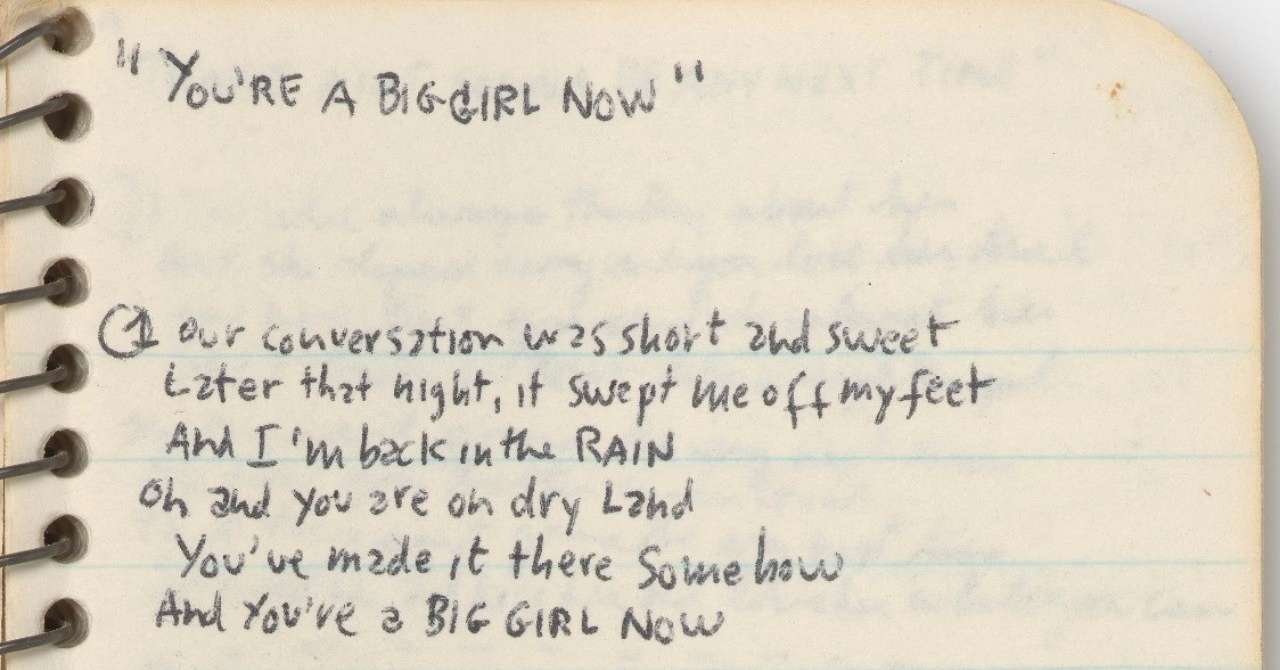 "YOU'RE A BIG GIRL NOW"
① our conversation was short and sweet
Later that night, it swept me off my feet
And I'm back in the RAIN
Oh and you are on dry Land
You've made it there Somehow
And You've a BIG GIRL NOW